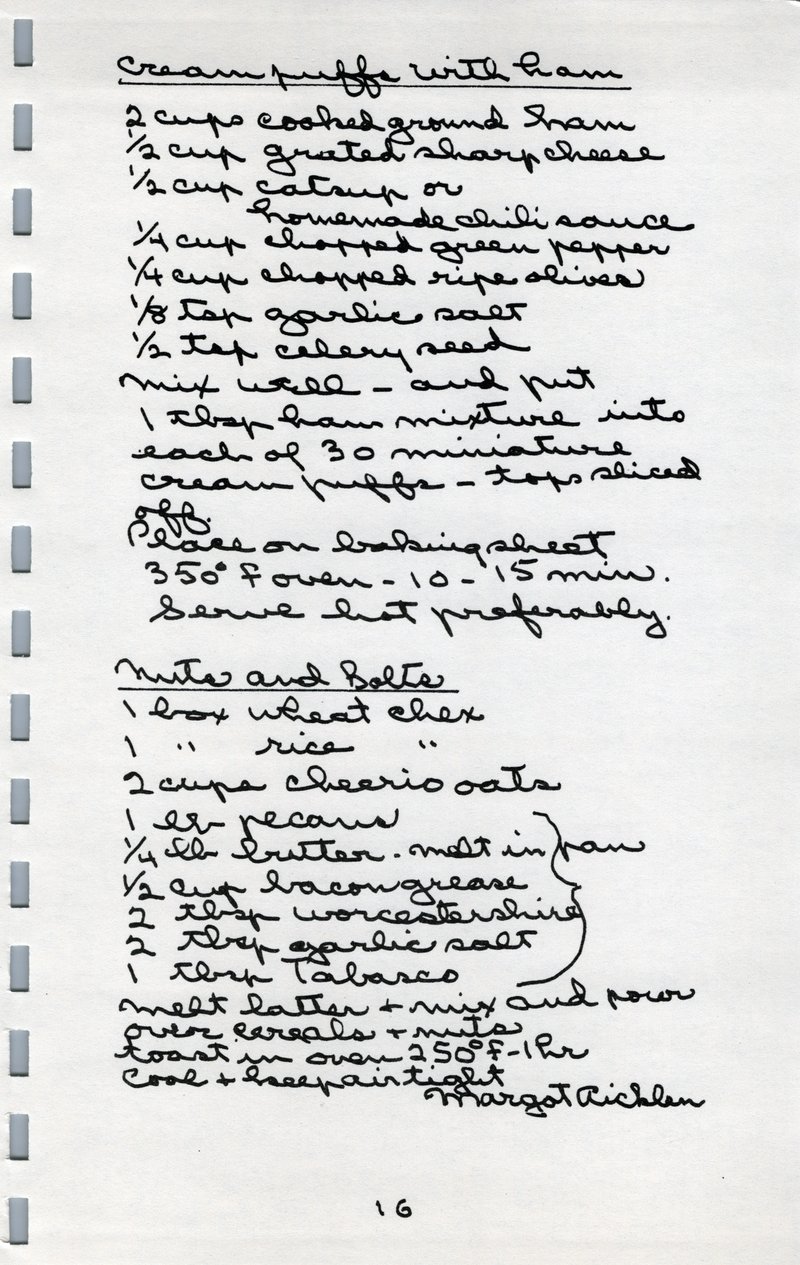 Cream puffs with ham
2 cups cooked ground ham
1/2 cup grated sharp cheese
1/2 cup catsup or
homemade chili sauce
1/4 cup chopped green pepper
1/4 cup chopped ripe olives
1/8 tsp garlic salt
1/2 tsp celery seed
Mix well - and put
1 tbsp ham mixture into
each of 30 miniature
cream puffs - tops sliced
off.
Place on baking sheet
350° F oven - 10 - 15 min.
Serve hot preferably.
Nuts and Bolts
1 box wheat chex
1 " rice "
2 cups cheerio oats
1 lb pecans
1/4 lb butter - melt in pan
1/2 cup bacon grease
2 tbsp worcestershire
2 tbsp garlic salt
1 tbsp Tabasco
melt latter + mix and pour
over cereals + nuts
toast in oven 250° F - 1 hr
Cool + keep air tight
Margot Aicklen
16